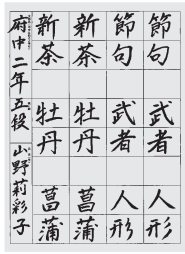 節句 武者 人形
節句 武者 人形
新茶 牡丹 菖蒲
新茶 牡丹 菖蒲
府中二年五段 山野莉彩子